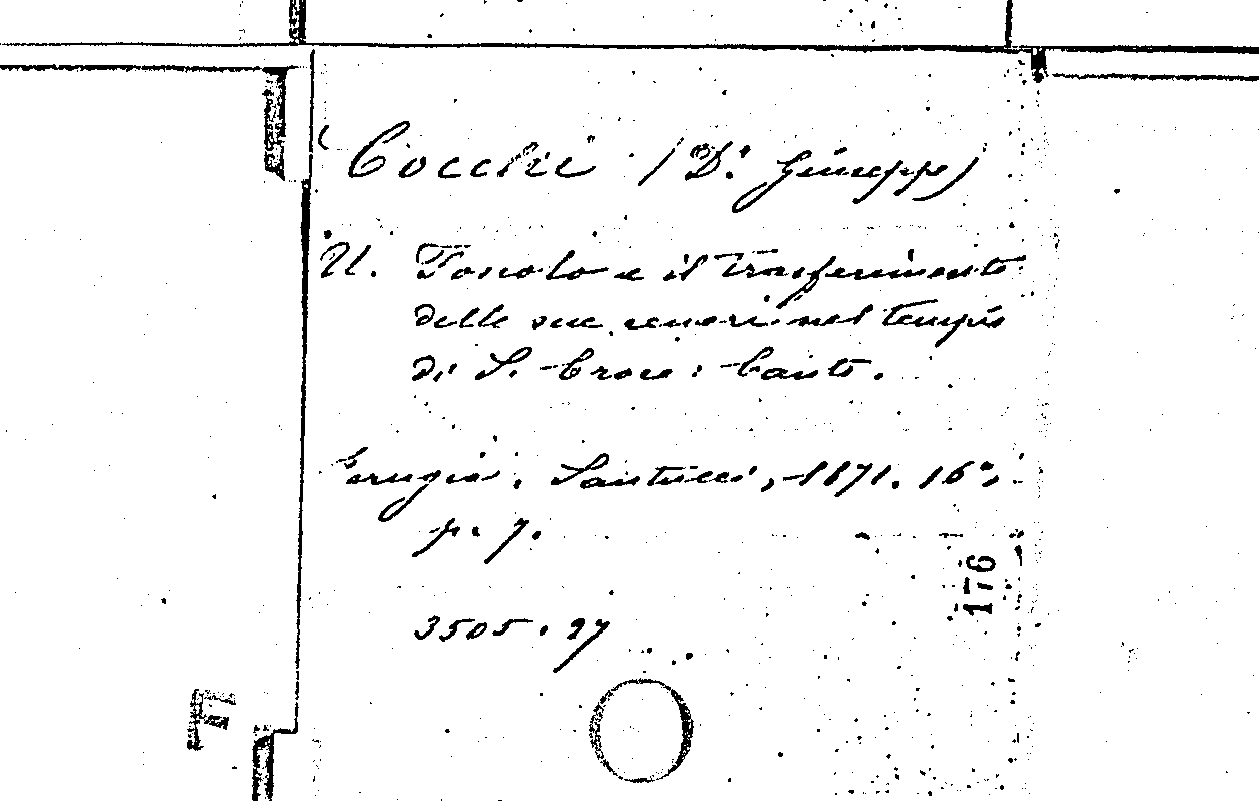 Cocchi (Dr. Giuseppe)
U. Foscolo e il trasferimento
delle sue ceneri nel tempio
di S. Croce: Canto.
Perugia, Santucci, 1871. 16°,
p. 7.
3505.27
176
F